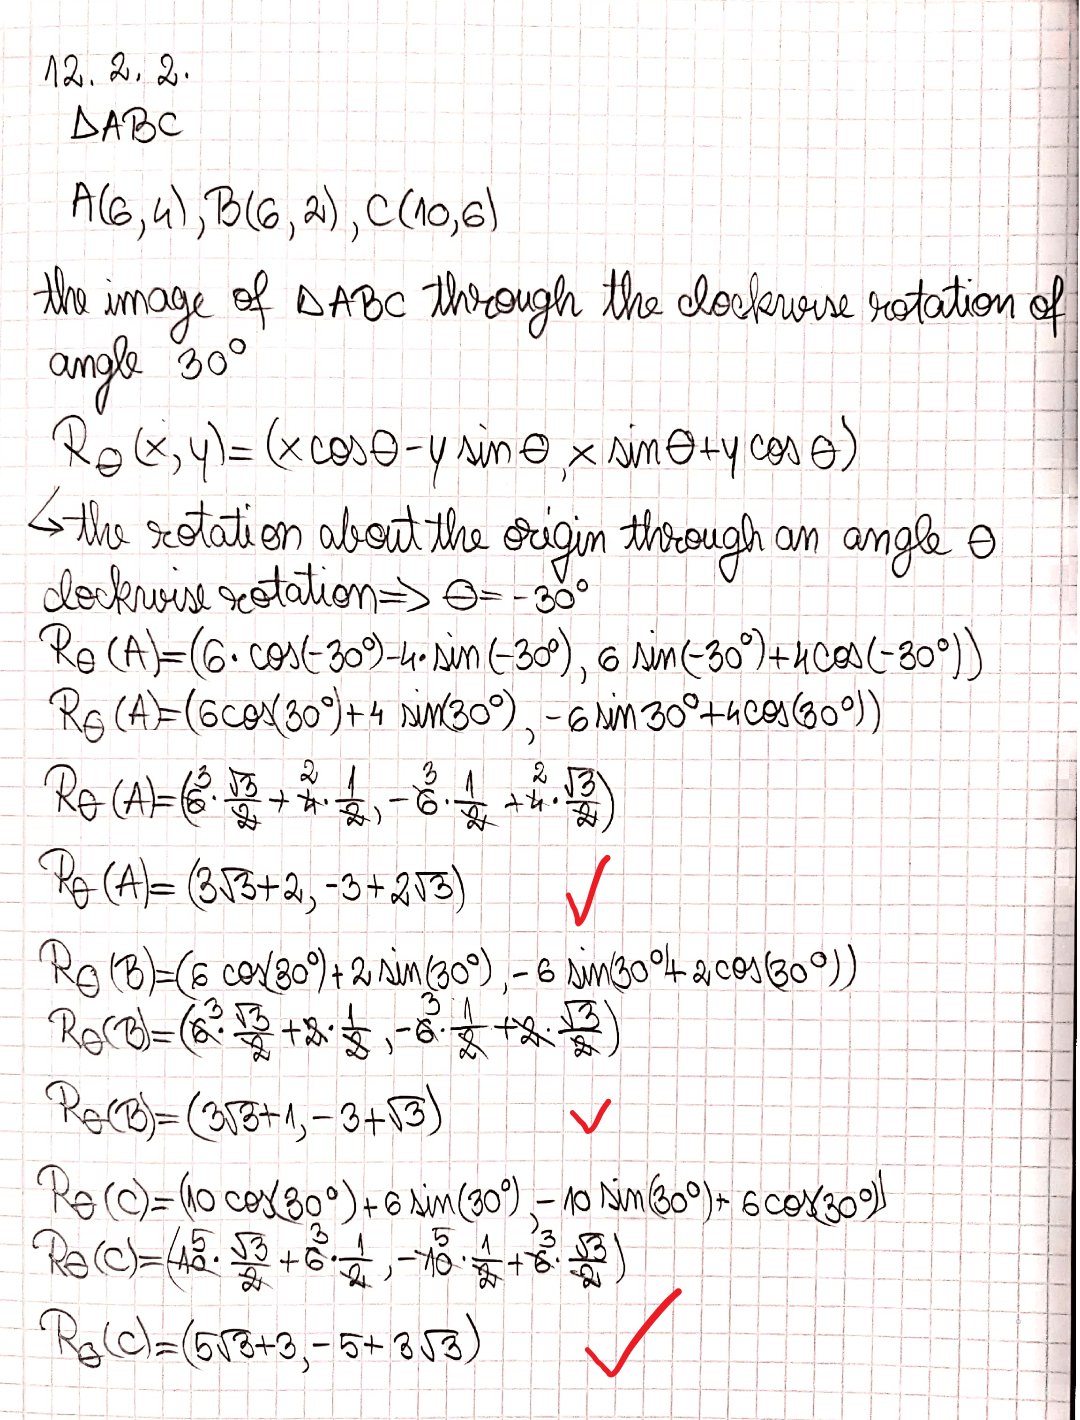 12. 2. 2.
ΔABC
A(6,4), B(6,2), C(10,6)
the image of ΔABC through the clockwise rotation of
angle 30°
R_θ(x,y)=(x cosθ-y sinθ, x sinθ+y cosθ)
↳ the rotation about the origin through an angle θ
clockwise rotation => θ=-30°
R_θ(A)=(6·cos(-30°)-4·sin(-30°), 6 sin(-30°)+4cos(-30°))
R_θ(A)=(6cos(30°)+4 sin(30°), -6 sin30°+4cos(30°))
R_θ(A)=(6³·√3/2+4²·1/2, -6³·1/2+4²·√3/2)
R_θ(A)=(3√3+2, -3+2√3) ✓
R_θ(B)=(6 cos(30°)+2 sin(30°), -6 sin(30°+2cos(30°))
R_θ(B)=(6³·√3/2+2·1/2, -6³·1/2+2·√3/2)
R_θ(B)=(3√3+1, -3+√3) ✓
R_θ(C)=(10 cos(30°)+6 sin(30°), -10 sin(30°)+6cos(30°))
R_θ(C)=(10⁵·√3/2+6³·1/2, -10⁵·1/2+6³·√3/2)
R_θ(C)=(5√3+3, -5+3√3) ✓